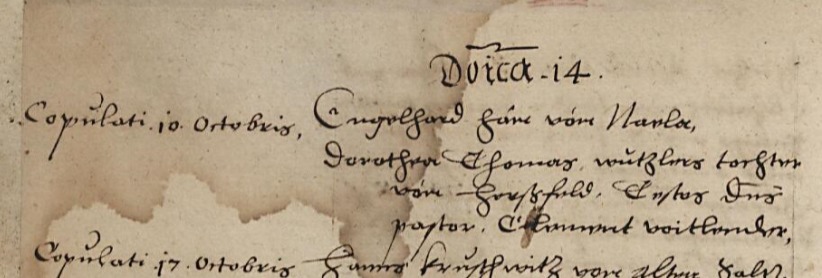 Doica. 14.
Copulati. 10. Octobris, Engelhard Hän von Naela,
Dorothea Thomas. wützlers tochter
von Herßfeld. Testes Dns
pastor. Clement voitlender,
Copulati. 17. Octobris Hanns kruschwitz von alten Saltz